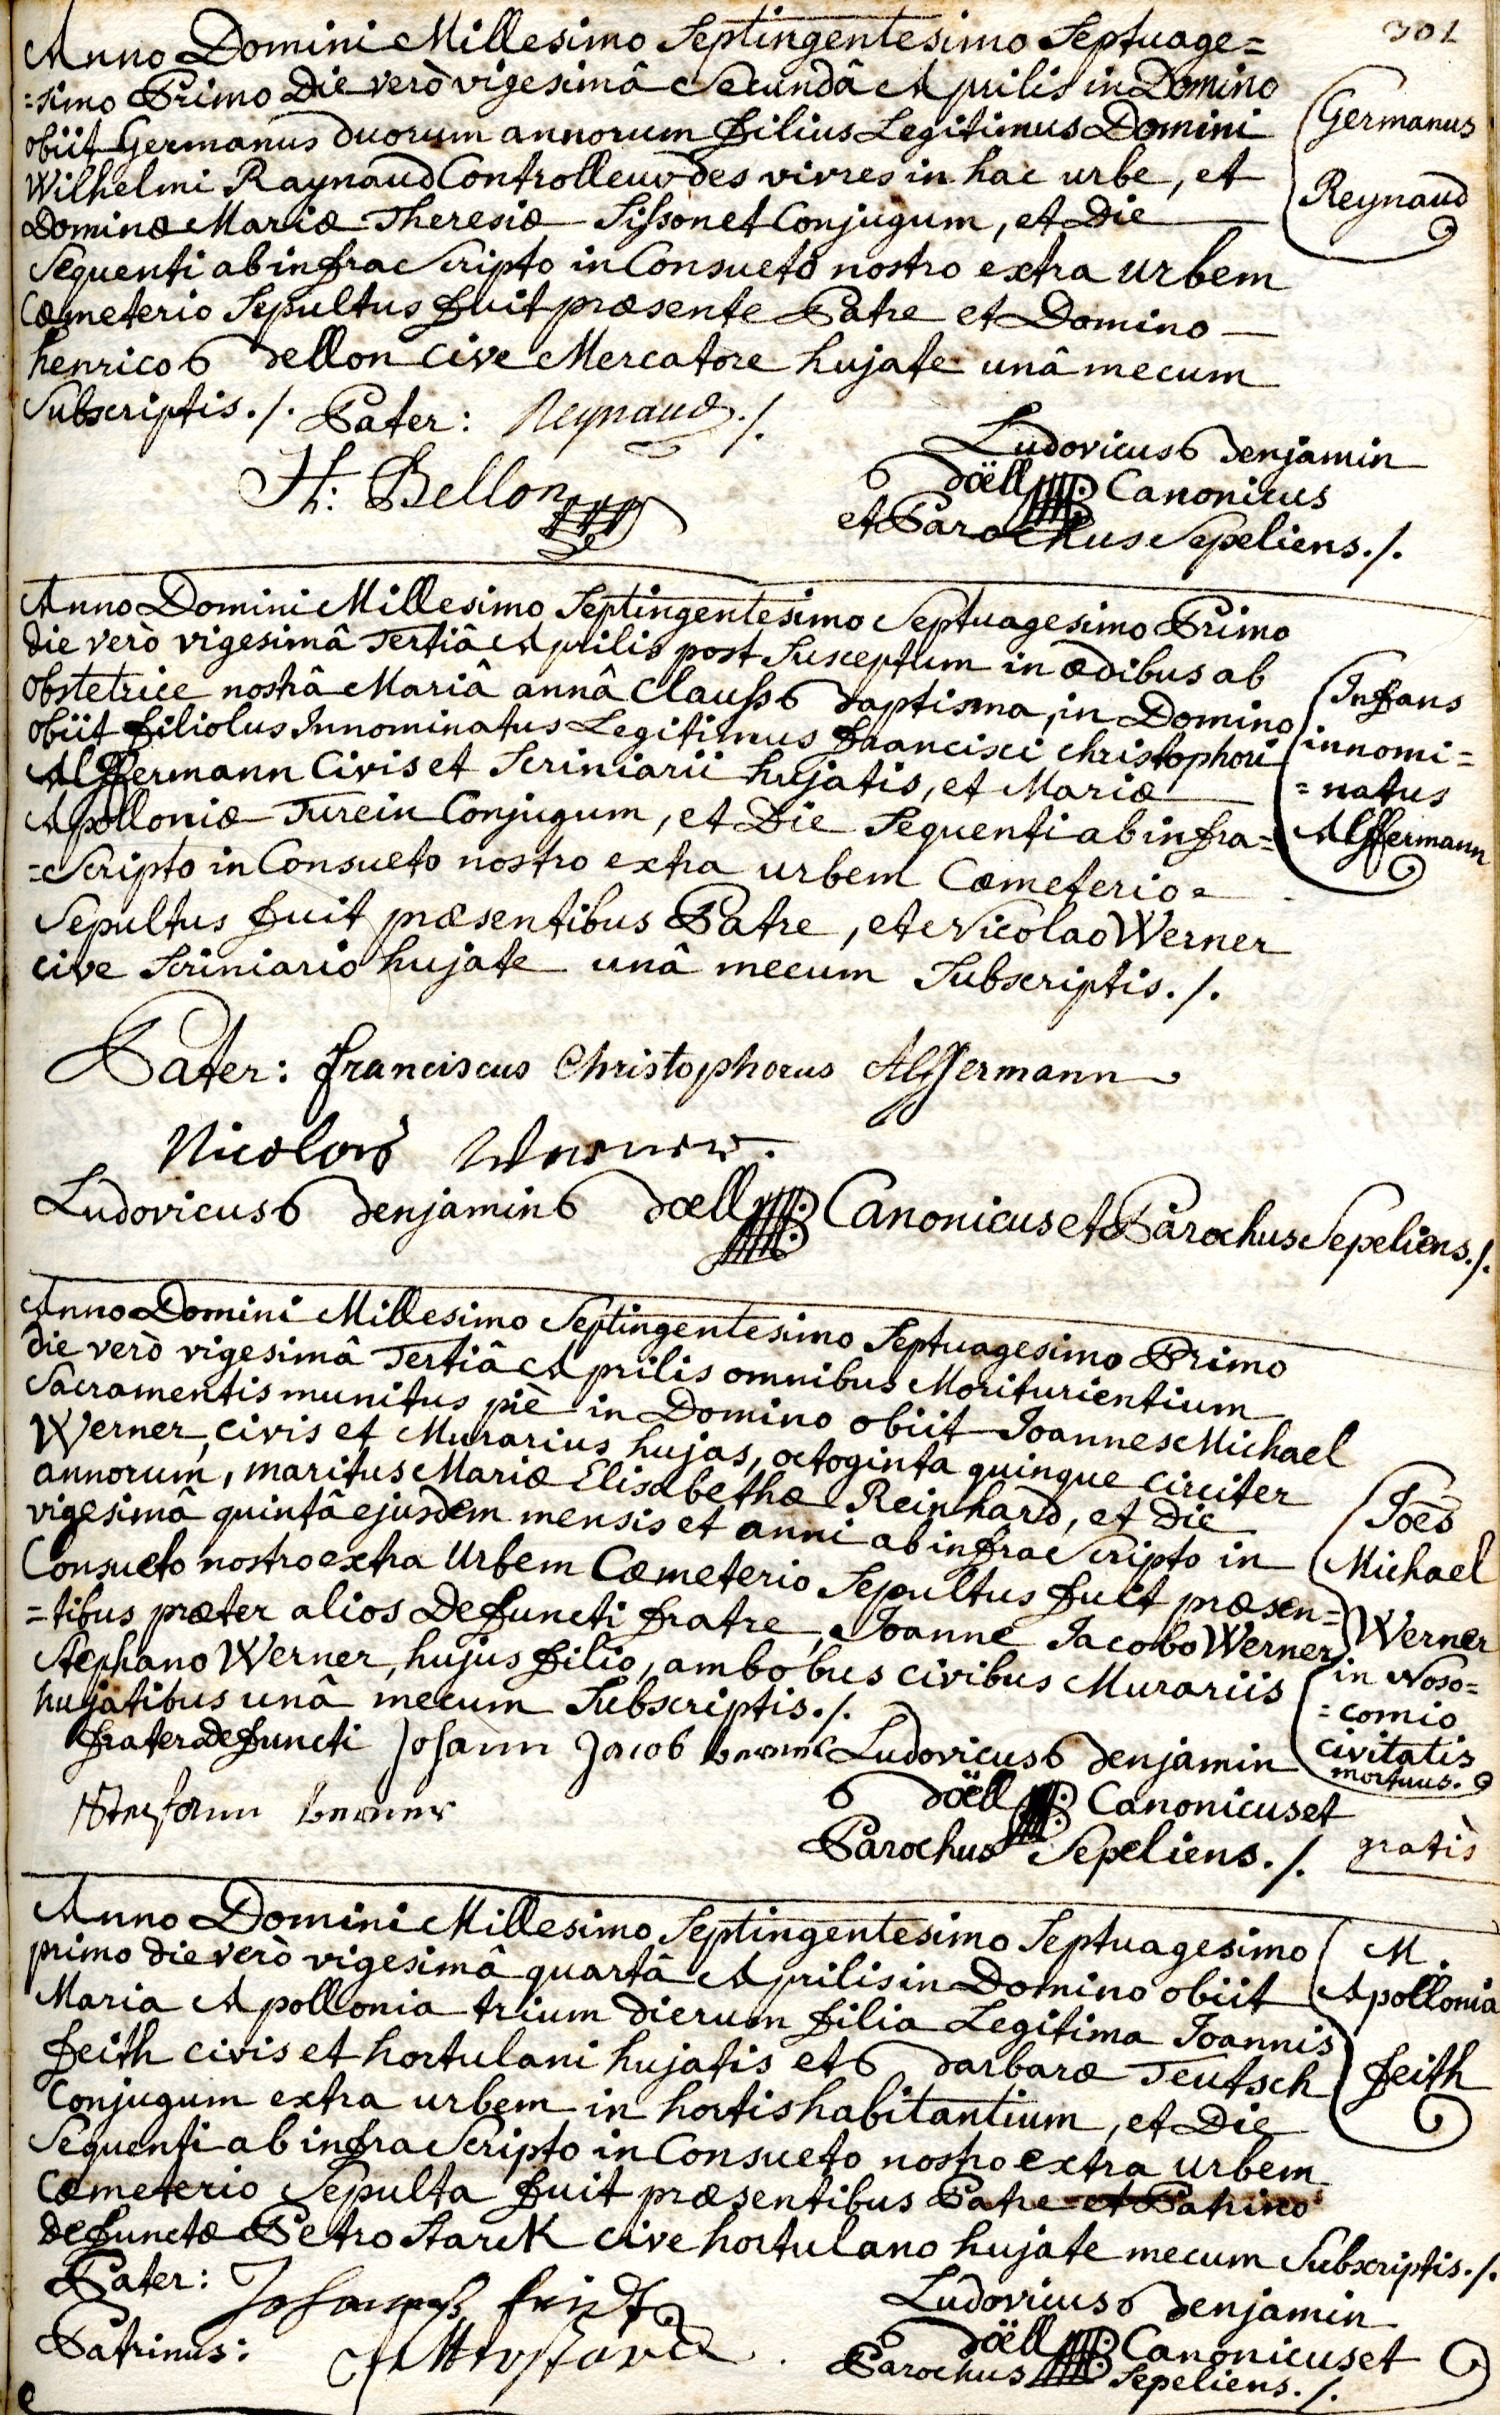 301
Anno Domini Millesimo Septingentesimo Septuage=
=simo Primo Die verò vigesimâ Secundâ Aprilis in Domino
obiit Germanus duorum annorum filius Legitimus Domini
Wilhelmi Raynaud Controlleur des vivres in hac urbe, et
Dominæ Mariæ Theresiæ Sissonet Conjugum, et Die
Sequenti ab infra Scripto in Consueto nostro extra urbem
Cœmeterio Sepultus fuit præsente Patre et Domino
henrico Bellon Cive Mercatore hujate unâ mecum
Subscriptis ./. Pater: Reynaud ./.
Germanus
Reynaud
H: Bellon
Ludovicus Benjamin
Böell Canonicus
et Parochus Sepeliens ./.
Anno Domini Millesimo Septingentesimo Septuagesimo Primo
die verò vigesimâ Tertiâ Aprilis post Susceptum in ædibus ab
obstetrice nostrâ Mariâ annâ Clauss baptisma, in Domino
obiit filiolus Innominatus Legitimus francisci christophori
Alffermann Civis et Scriniarii hujatis, et Mariæ
Apolloniæ Turein Conjugum, et Die Sequenti ab infra=
=Scripto in Consueto nostro extra urbem Cœmeterio
Sepultus fuit præsentibus Patre, et Nicolao Werner
cive Scriniario hujate unâ mecum Subscriptis ./.
Infans
innomi=
=natus
Alffermann
Pater: franciscus Christophorus Alffermann
Nicolaus Werner.
Ludovicus Benjamin Böell Canonicus et Parochus Sepeliens ./.
Anno Domini Millesimo Septingentesimo Septuagesimo Primo
die verò vigesimâ Tertiâ Aprilis omnibus Moriturientium
Sacramentis munitus piè in Domino obiit Joannes Michael
Werner, civis et Murarius hujas, octoginta quinque circiter
annorum, maritus Mariæ Elisabethæ Reinhard, et die
vigesimâ quintâ ejusdem mensis et anni ab infra Scripto in
Consueto nostro extra Urbem Cœmeterio Sepultus fuit præsen=
=tibus præter alios Defuncti fratre, Joanne Jacobo Werner
Stephano Werner, hujus filio, ambobus civibus Murariis
hujatibus unâ mecum Subscriptis ./.
Joes
Michael
Werner
in Noso=
=comio
civitatis
mortuus.
frater Defuncti Johann Jacob werner
Ludovicus Benjamin
Böell Canonicus et
Parochus Sepeliens ./.
gratis
Anno Domini Millesimo Septingentesimo Septuagesimo
primo die verò vigesimâ quartâ Aprilis in Domino obiit
Maria Apollonia trium dierum filia Legitima Joannis
feith civis et hortulani hujatis et Barbaræ Teutsch
Conjugum extra urbem in hortis habitantium, et Die
Sequenti ab infra Scripto in Consueto nostro extra urbem
Cœmeterio Sepulta fuit præsentibus Patre et Patrino
defunctæ Petro Starck cive hortulano hujate mecum Subscriptis ./.
M.
Apollonia
feith
Pater: Johannes
Patrinus:
Ludovicus Benjamin
Böell Canonicus et
Parochus Sepeliens ./.